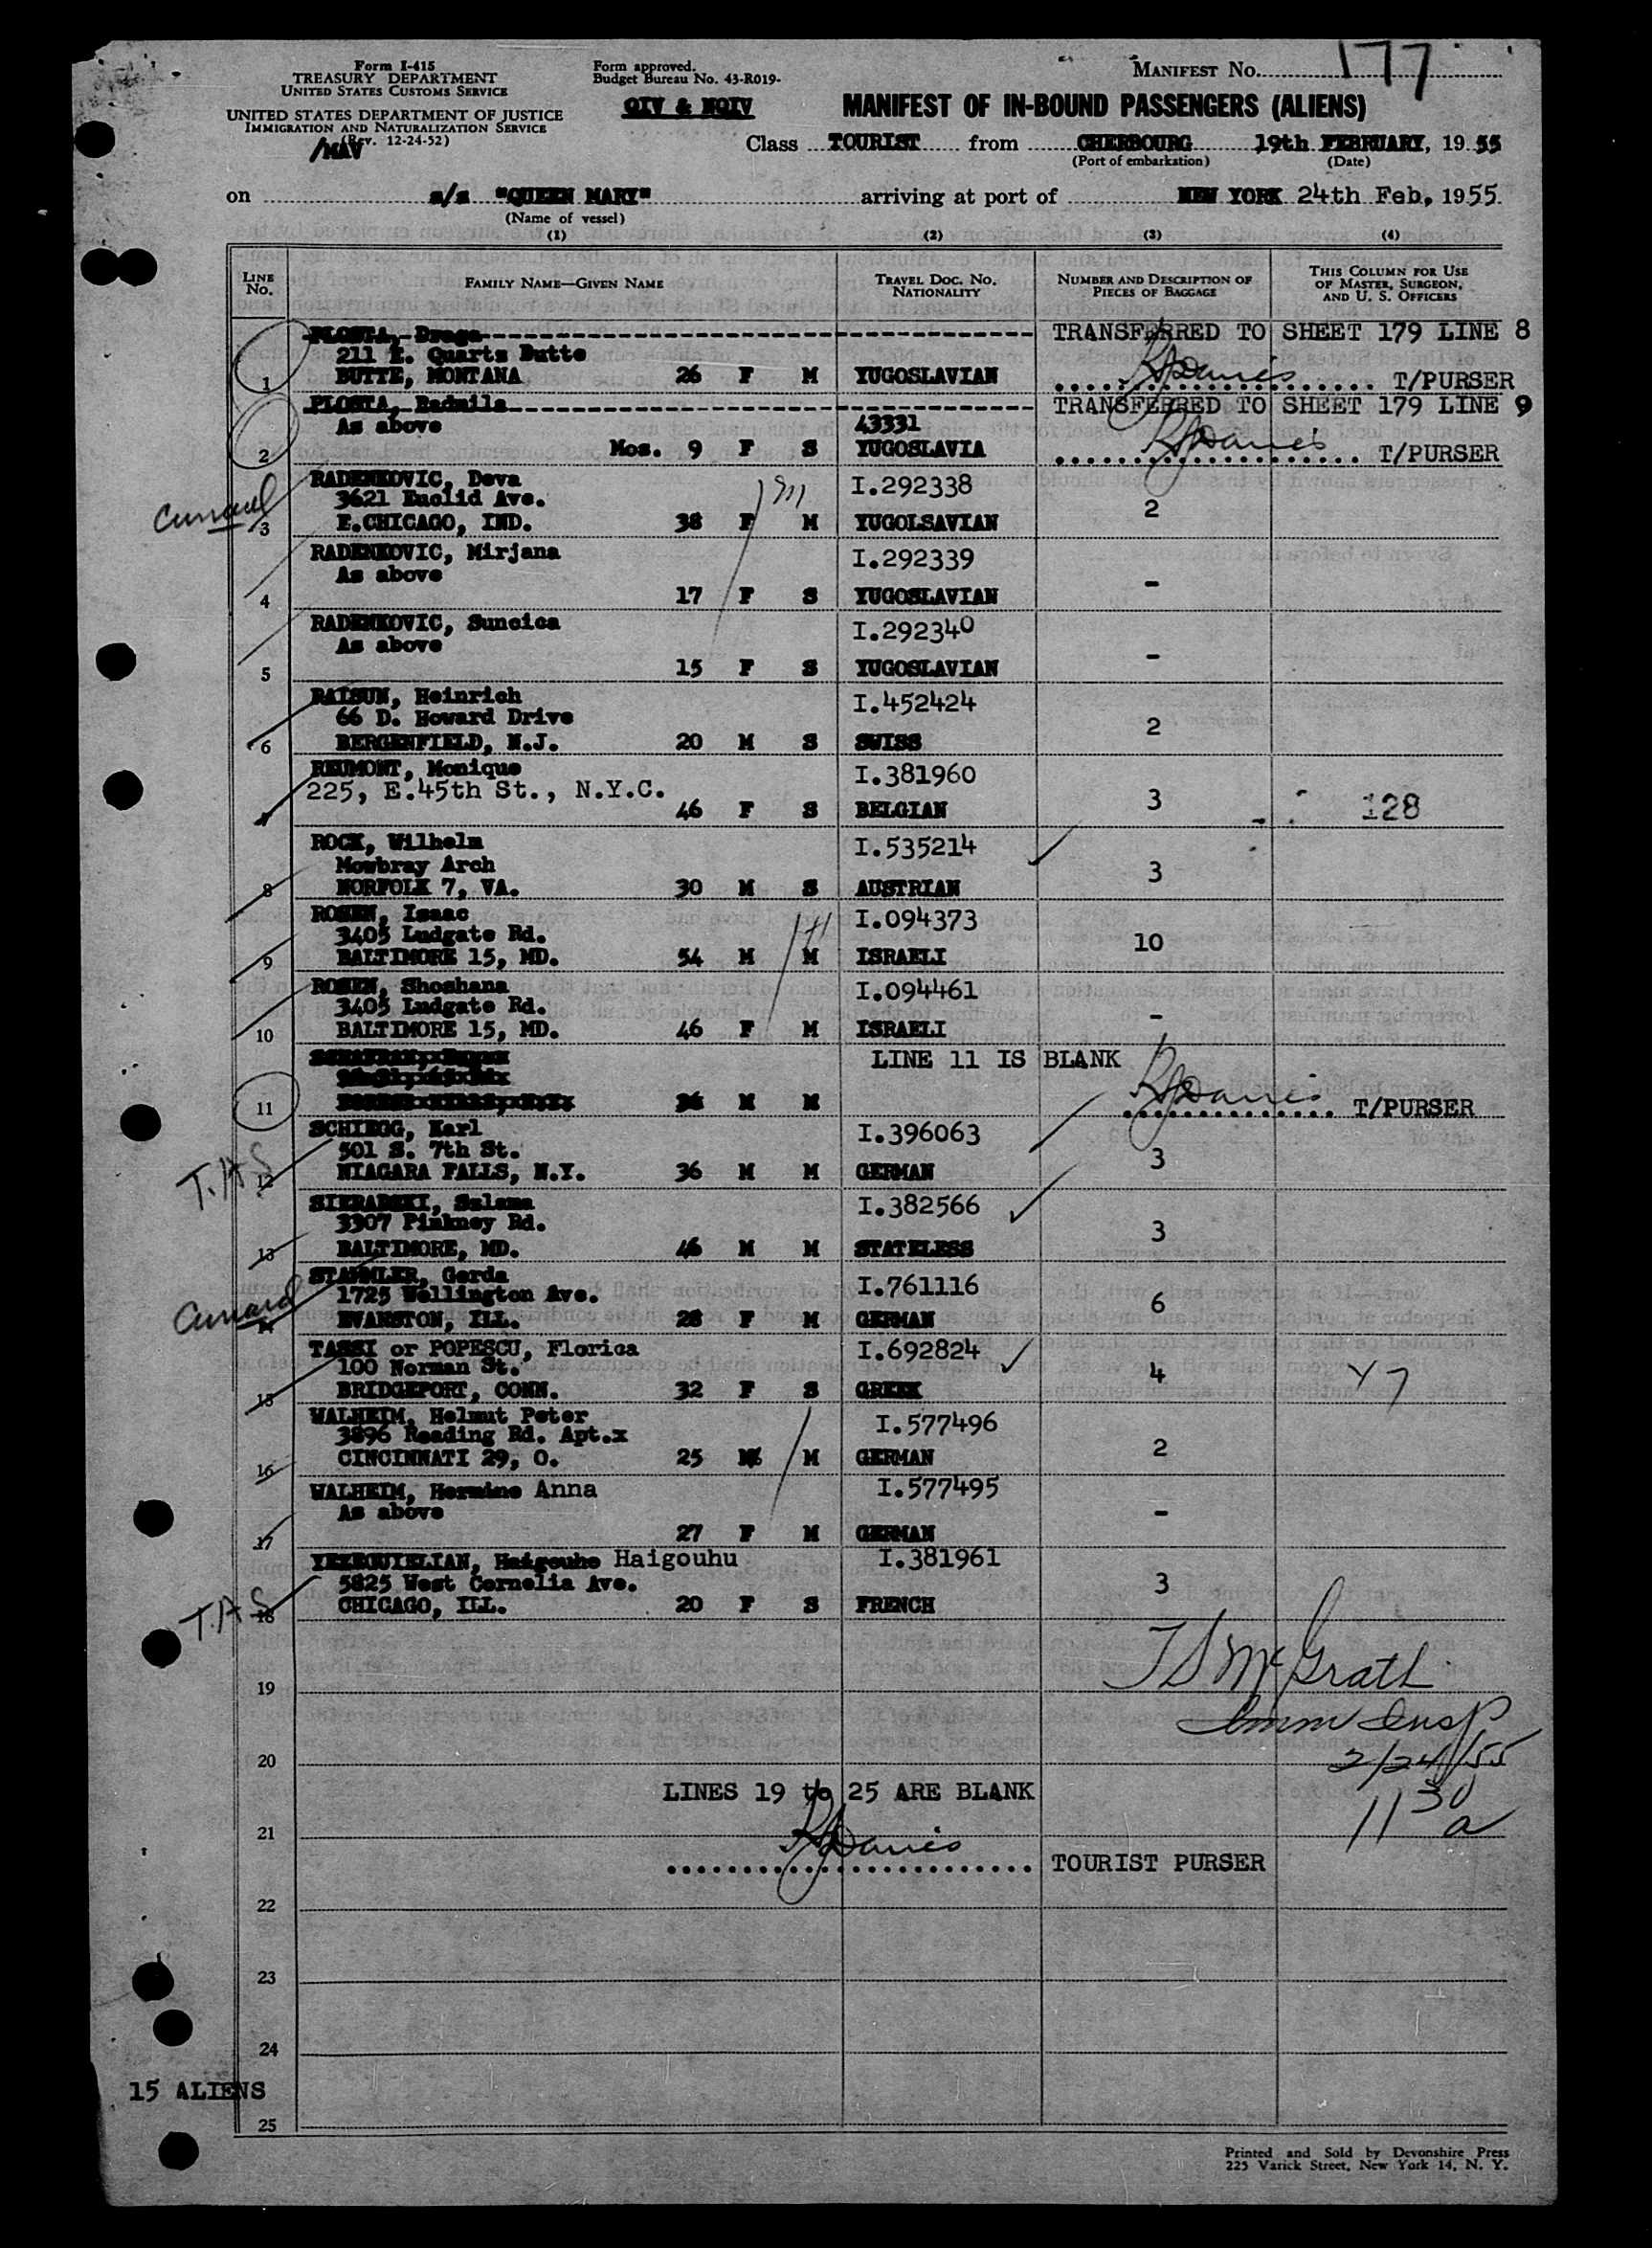 Form I-415
TREASURY DEPARTMENT
UNITED STATES CUSTOMS SERVICE
UNITED STATES DEPARTMENT OF JUSTICE
IMMIGRATION AND NATURALIZATION SERVICE
(Rev. 12-24-52)
/MAV
Form approved.
Budget Bureau No. 43-R019-
QIV & NQIV
MANIFEST No. 177
MANIFEST OF IN-BOUND PASSENGERS (ALIENS)
Class TOURIST from CHERBOURG 19th FEBRUARY, 1955
(Port of embarkation) (Date)
on s/s "QUEEN MARY" arriving at port of NEW YORK 24th Feb, 1955.
(Name of vessel)
(1) (2) (3) (4)
LINE No. FAMILY NAME—GIVEN NAME TRAVEL DOC. NO. NATIONALITY NUMBER AND DESCRIPTION OF PIECES OF BAGGAGE THIS COLUMN FOR USE OF MASTER, SURGEON, AND U. S. OFFICERS
PLOSTA, Draga TRANSFERRED TO SHEET 179 LINE 8
211 E. Quarts Butte
1 BUTTE, MONTANA 26 F M YUGOSLAVIAN RJDavies T/PURSER
PLOSTA, Radmila TRANSFERRED TO SHEET 179 LINE 9
As above 43331
2 Mos. 9 F S YUGOSLAVIA RJDavies T/PURSER
RADENKOVIC, Deva I.292338
Cunard 3621 Euclid Ave. 2
3 E.CHICAGO, IND. 38 F M YUGOLSAVIAN
RADENKOVIC, Mirjana I.292339
As above -
4 17 F S YUGOSLAVIAN
RADENKOVIC, Suncica I.292340
As above -
5 15 F S YUGOSLAVIAN
RAISUN, Heinrich I.452424
66 D. Howard Drive 2
6 BERGENFIELD, N.J. 20 M S SWISS
REUMONT, Monique I.381960
225, E.45th St., N.Y.C. 3 128
46 F S BELGIAN
ROCK, Wilhelm I.535214
Mowbray Arch 3
8 NORFOLK 7, VA. 30 M S AUSTRIAN
ROSEN, Isaac I.094373
3405 Ludgate Rd. 10
9 BALTIMORE 15, MD. 54 M M ISRAELI
ROSEN, Shoshana I.094461
3405 Ludgate Rd. -
10 BALTIMORE 15, MD. 46 F M ISRAELI
LINE 11 IS BLANK
11 36 M M RJDavies T/PURSER
SCHIEGG, Karl I.396063
501 S. 7th St. 3
T.A.S 12 NIAGARA FALLS, N.Y. 36 M M GERMAN
SIERADSKI, Szlama I.382566
3307 Pinkney Rd. 3
13 BALTIMORE, MD. 46 M M STATELESS
STAMMLER, Gerda I.761116
Cunard 1725 Wellington Ave. 6
14 EVANSTON, ILL. 28 F M GERMAN
TASSI or POPESCU, Florica I.692824
100 Norman St. 4
15 BRIDGEPORT, CONN. 32 F S GREEK
WALHEIM, Helmut Peter I.577496
3896 Reading Rd. Apt.x 2
16 CINCINNATI 29, O. 25 M M GERMAN
WALHEIM, Hermine Anna I.577495
As above -
17 27 F M GERMAN
YEZEGUIELIAN, Haigouhe Haigouhu I.381961
5825 West Cornelia Ave. 3
T.A.S 18 CHICAGO, ILL. 20 F S FRENCH
T S McGrath
19
Imm Insp
20 2/24/55
LINES 19 to 25 ARE BLANK 11 30 a
21
RJDavies TOURIST PURSER
22
23
24
15 ALIENS
25
Printed and Sold by Devonshire Press
225 Varick Street, New York 14, N. Y.